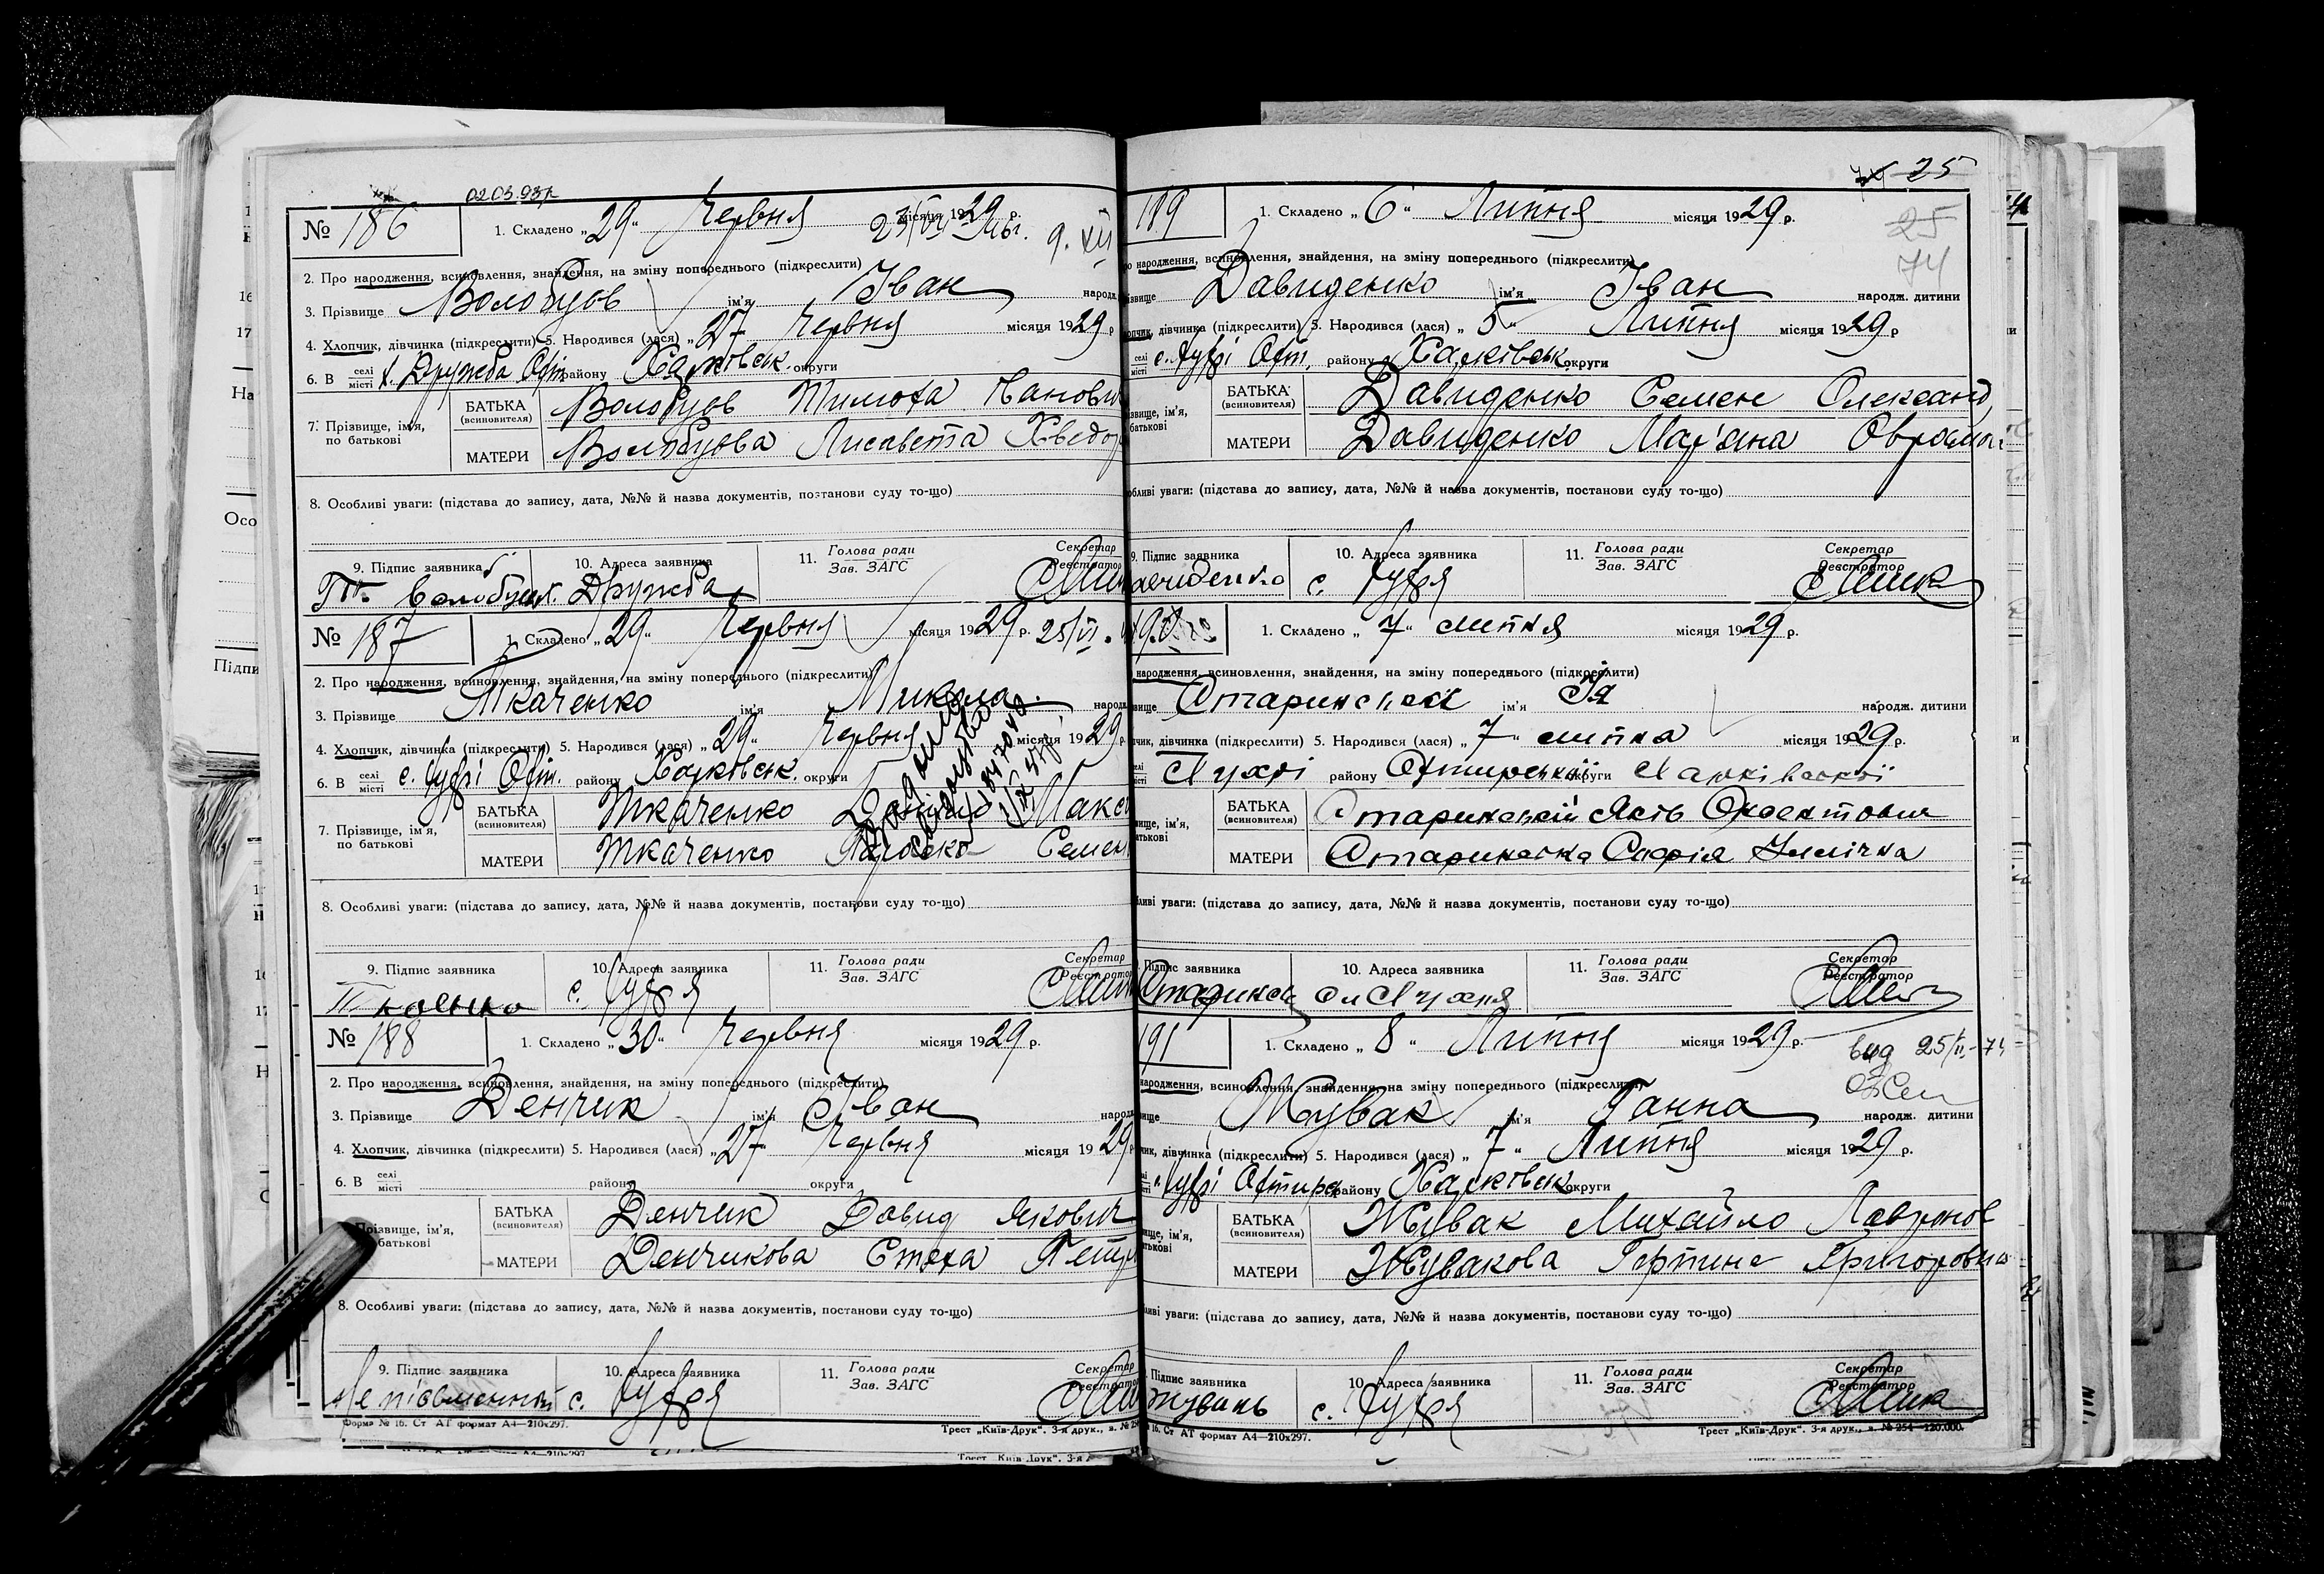 02.03.93р.
№ 186
1. Складено „29" Червня місяця 1929 р.
2. Про народження, всиновлення, знайдення, на зміну попереднього (підкреслити)
3. Прізвище Волобуов ім'я Іван народж.
4. Хлопчик, дівчинка (підкреслити) 5. Народився (лася) „27 Червня місяця 1929 р
6. В селі місті х. Дружба Охт. району Харківськ. округи
7. Прізвище, ім'я, по батькові
БАТЬКА (всиновителя) Волобуов Тимоха Іванович
МАТЕРИ Волобуова Лисавета Хведор
8. Особливі уваги: (підстава до запису, дата, №№ й назва документів, постанови суду то-що)
9. Підпис заявника 10. Адреса заявника 11. Голова ради Зав. ЗАГС Секретар Реєстратор
х. Дружба
№ 187
1. Складено „29" Червня місяця 1929 р.
2. Про народження, всиновлення, знайдення, на зміну попереднього (підкреслити)
3. Прізвище Ткаченко ім'я Микола народж.
4. Хлопчик, дівчинка (підкреслити) 5. Народився (лася) „29" Червня місяця 1929 р.
6. В селі місті с. Чупрі Охт. району Харківськ. округи
7. Прізвище, ім'я, по батькові
БАТЬКА (всиновителя) Ткаченко Макси
МАТЕРИ Ткаченко Параска Семен
8. Особливі уваги: (підстава до запису, дата, №№ й назва документів, постанови суду то-що)
9. Підпис заявника 10. Адреса заявника 11. Голова ради Зав. ЗАГС Секретар Реєстратор
Ткаченко с. Чупря
№ 188
1. Складено „30" Червня місяця 1929 р.
2. Про народження, всиновлення, знайдення, на зміну попереднього (підкреслити)
3. Прізвище Денчик ім'я Іван народж.
4. Хлопчик, дівчинка (підкреслити) 5. Народився (лася) „27 Червня місяця 1929 р.
6. В селі місті району округи
Прізвище, ім'я, батькові
БАТЬКА (всиновителя) Денчик Давид Якович
МАТЕРИ Денчикова Стеха Петр
8. Особливі уваги: (підстава до запису, дата, №№ й назва документів, постанови суду то-що)
9. Підпис заявника 10. Адреса заявника 11. Голова ради Зав. ЗАГС Секретар Реєстратор
Не письменний с. Чупря
Форма № 16. Ст АТ формат А4—210х297. Трест „Київ-Друк". 3-я друк., з. № 254
25
25
74
189
1. Складено „6" Липня місяця 1929 р.
народження, всиновлення, знайдення, на зміну попереднього (підкреслити)
Давиденко ім'я Іван народж. дитини
дівчинка (підкреслити) 5. Народився (лася) „5" Липня місяця 1929 р
селі місті с. Чупрі Охт. району Харківськ. округи
БАТЬКА (всиновителя) Давиденко Семен Олександ
МАТЕРИ Давиденко Мар'яна Оврамов
уваги: (підстава до запису, дата, №№ й назва документів, постанови суду то-що)
9. Підпис заявника 10. Адреса заявника 11. Голова ради Зав. ЗАГС Секретар Реєстратор
Давиденко с. Чупря
190
1. Складено „7" липня місяця 1929 р.
народження, всиновлення, знайдення, на зміну попереднього (підкреслити)
ім'я народж. дитини
дівчинка (підкреслити) 5. Народився (лася) „7" липня місяця 1929 р.
району Охтирський округи Харківської
БАТЬКА (всиновителя) Старинський Яків
МАТЕРИ Старинська Софія
уваги: (підстава до запису, дата, №№ й назва документів, постанови суду то-що)
Підпис заявника 10. Адреса заявника 11. Голова ради Зав. ЗАГС Секретар Реєстратор
191
1. Складено „8" Липня місяця 1929 р.
вид 25/II-74
народження, всиновлення, знайдення, на зміну попереднього (підкреслити)
Жувак ім'я Ганна народж. дитини
дівчинка (підкреслити) 5. Народився (лася) „7" Липня місяця 1929 р.
с. Чупрі Охтирськ району Харківськ округи
БАТЬКА (всиновителя) Жувак Михайло Лавронов
МАТЕРИ Жувакова Горпина Григоровна
уваги: (підстава до запису, дата, №№ й назва документів, постанови суду то-що)
Підпис заявника 10. Адреса заявника 11. Голова ради Зав. ЗАГС Секретар Реєстратор
с. Чупря
16. Ст АТ формат А4—210х297. Трест „Київ-Друк". 3-я друк., з. № 254—120.000.